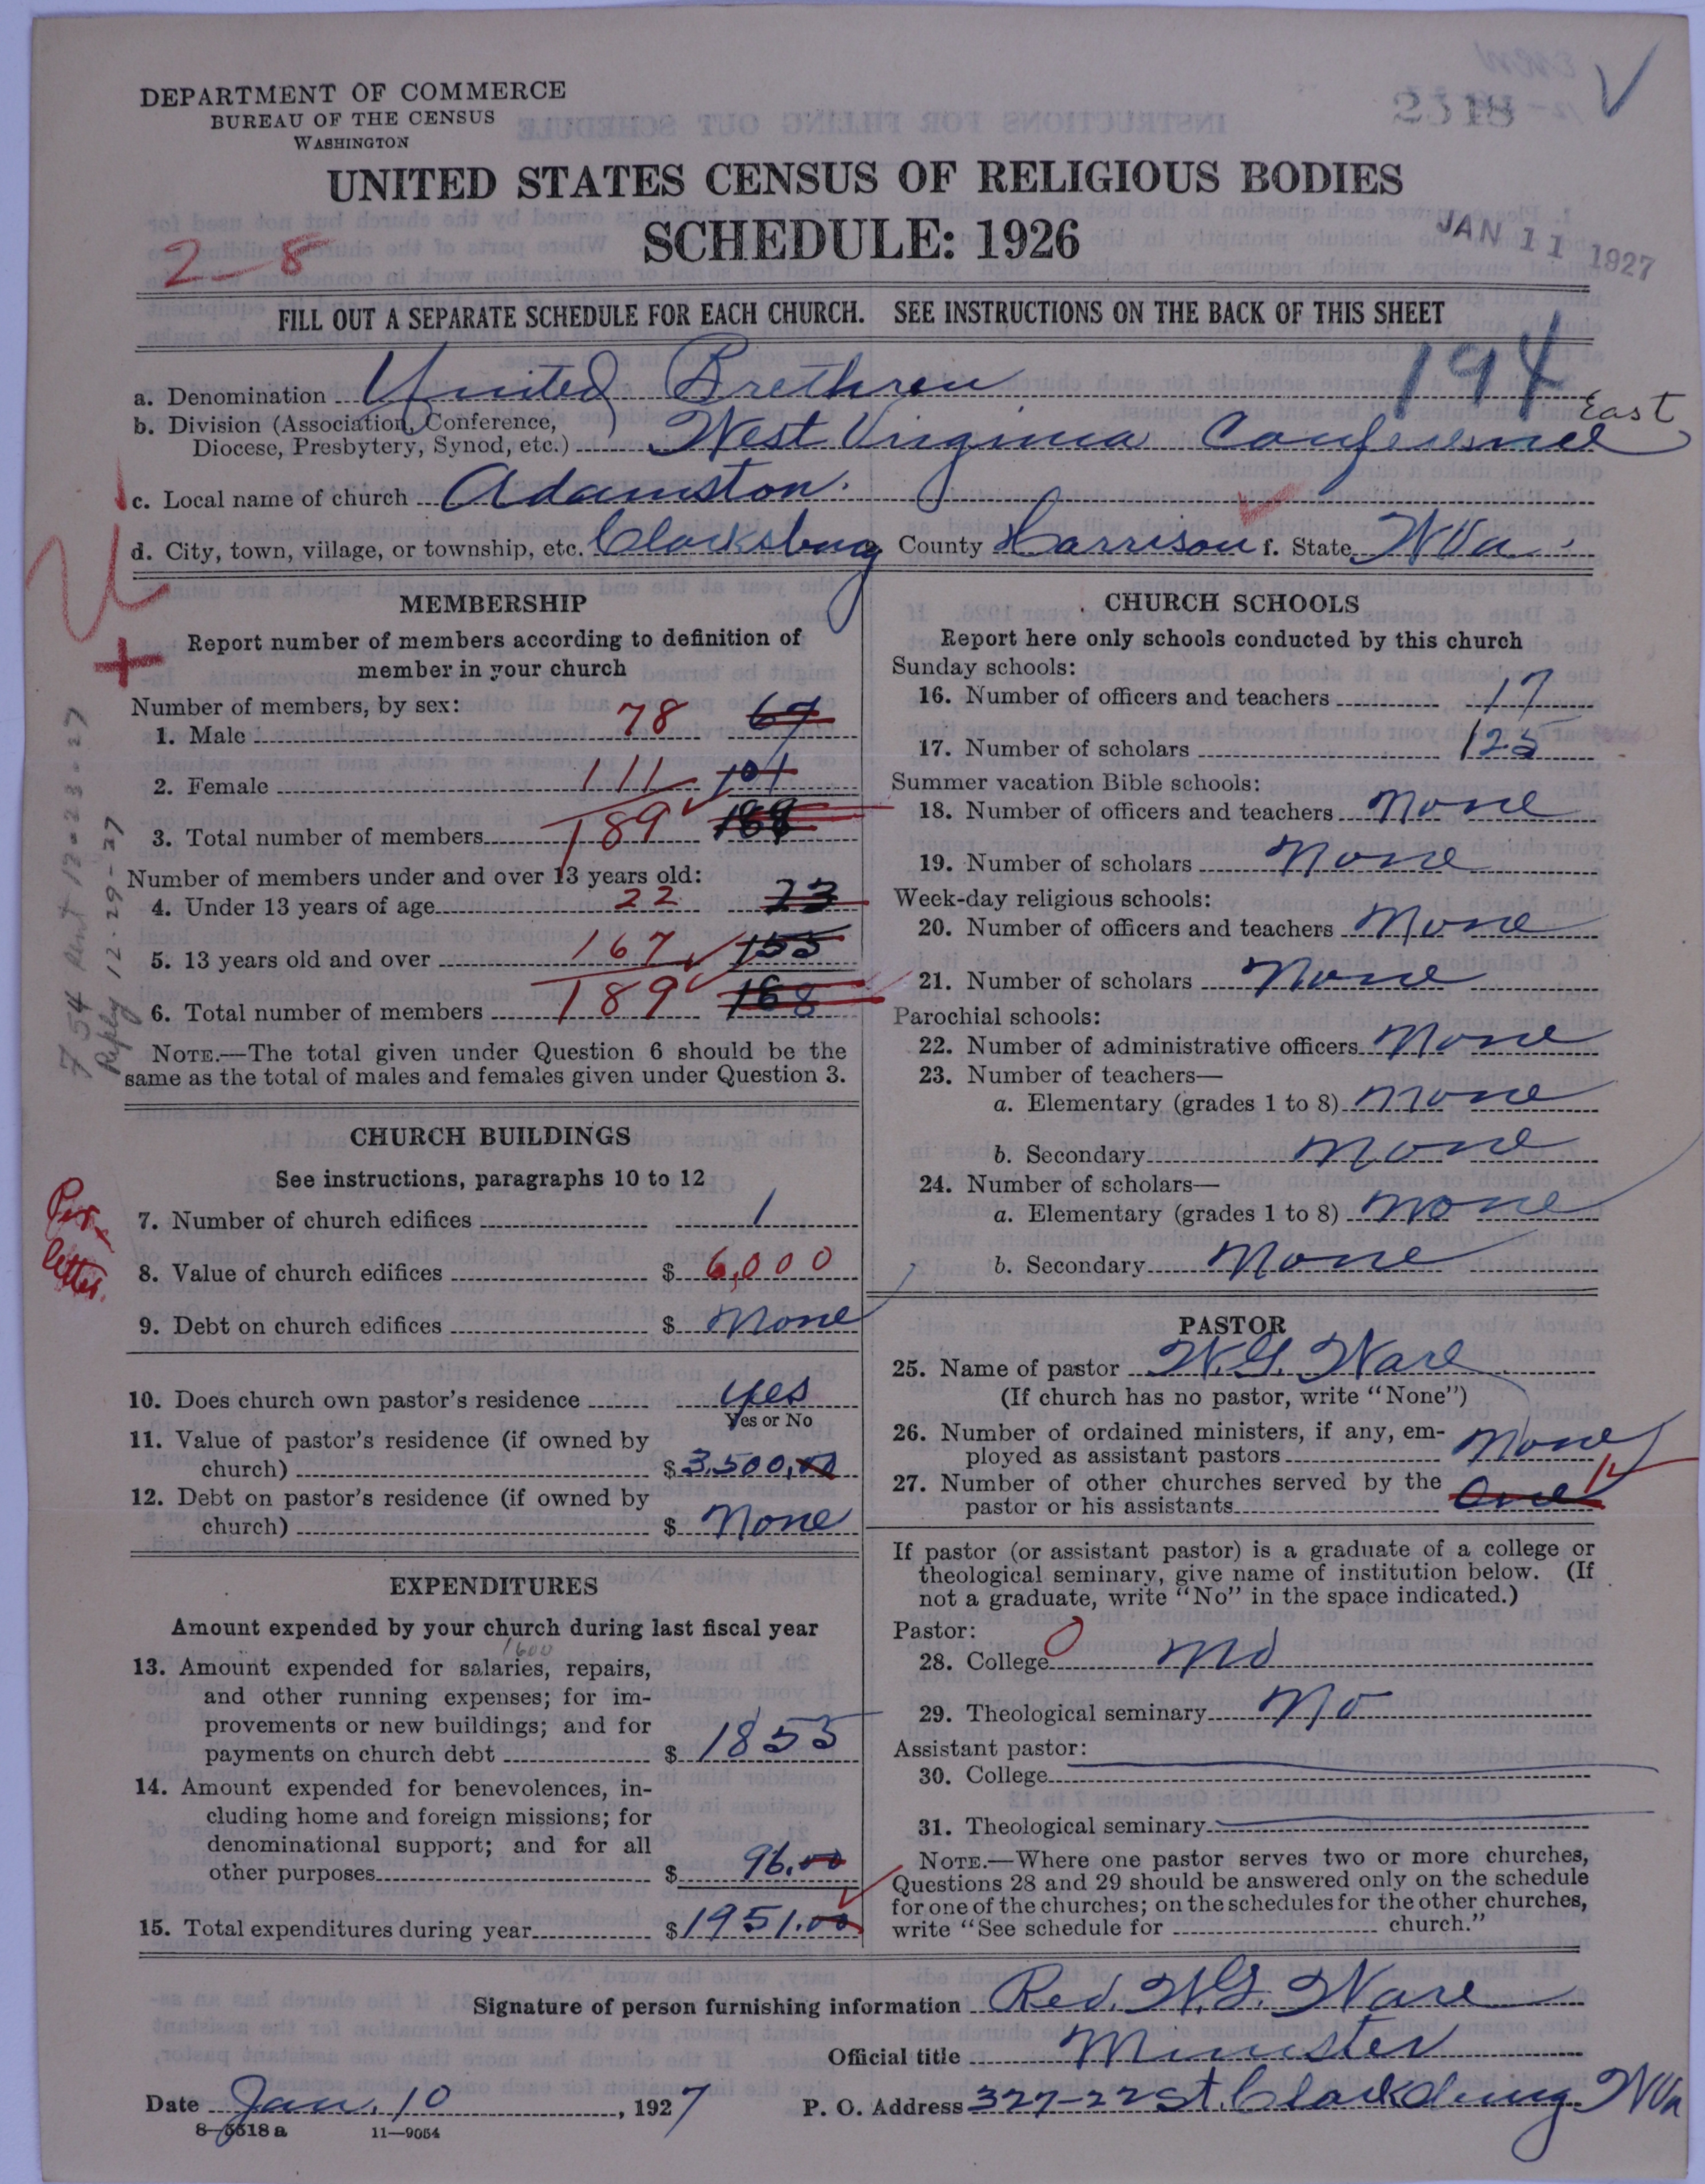 DEPARTMENT OF COMMERCE
BUREAU OF THE CENSUS
WASHINGTON
2518
UNITED STATES CENSUS OF RELIGIOUS BODIES
SCHEDULE: 1926
2-8
JAN 11 1927
FILL OUT A SEPARATE SCHEDULE FOR EACH CHURCH. SEE INSTRUCTIONS ON THE BACK OF THIS SHEET
194
a. Denomination United Brethren
b. Division (Association, Conference, Diocese, Presbytery, Synod, etc.) West Virginia Conference East
c. Local name of church Adamston.
d. City, town, village, or township, etc. Clarksburg County Harrison f. State W Va.
MEMBERSHIP
Report number of members according to definition of
member in your church
Number of members, by sex:
1. Male 78 67
2. Female 111 101
3. Total number of members 189 168
Number of members under and over 13 years old:
4. Under 13 years of age 22 23
5. 13 years old and over 167 155
6. Total number of members 189 168
NOTE.—The total given under Question 6 should be the
same as the total of males and females given under Question 3.
754 Sent 12-23-27
Reply 12-29-27
CHURCH BUILDINGS
See instructions, paragraphs 10 to 12
7. Number of church edifices 1
Per letter.
8. Value of church edifices $ 6,000
9. Debt on church edifices $ None
10. Does church own pastor's residence yes
Yes or No
11. Value of pastor's residence (if owned by
church) $ 3,500,00
12. Debt on pastor's residence (if owned by
church) $ None
EXPENDITURES
Amount expended by your church during last fiscal year
1600
13. Amount expended for salaries, repairs,
and other running expenses; for im-
provements or new buildings; and for
payments on church debt $ 1855
14. Amount expended for benevolences, in-
cluding home and foreign missions; for
denominational support; and for all
other purposes $ 96.00
15. Total expenditures during year $ 1951.00
CHURCH SCHOOLS
Report here only schools conducted by this church
Sunday schools:
16. Number of officers and teachers 17
17. Number of scholars 125
Summer vacation Bible schools:
18. Number of officers and teachers None
19. Number of scholars None
Week-day religious schools:
20. Number of officers and teachers None
21. Number of scholars None
Parochial schools:
22. Number of administrative officers None
23. Number of teachers—
a. Elementary (grades 1 to 8) None
b. Secondary None
24. Number of scholars—
a. Elementary (grades 1 to 8) None
b. Secondary None
PASTOR
25. Name of pastor W. G. Ware
(If church has no pastor, write "None")
26. Number of ordained ministers, if any, em-
ployed as assistant pastors None
27. Number of other churches served by the
pastor or his assistants One
If pastor (or assistant pastor) is a graduate of a college or
theological seminary, give name of institution below. (If
not a graduate, write "No" in the space indicated.)
Pastor:
28. College 0 No
29. Theological seminary No
Assistant pastor:
30. College
31. Theological seminary
NOTE.—Where one pastor serves two or more churches,
Questions 28 and 29 should be answered only on the schedule
for one of the churches; on the schedules for the other churches,
write "See schedule for church."
Signature of person furnishing information Rev. W. G. Ware
Official title Minister
Date Jan. 10, 1927 P. O. Address 327-22 St. Clarksburg W Va
8-5518a 11—9054